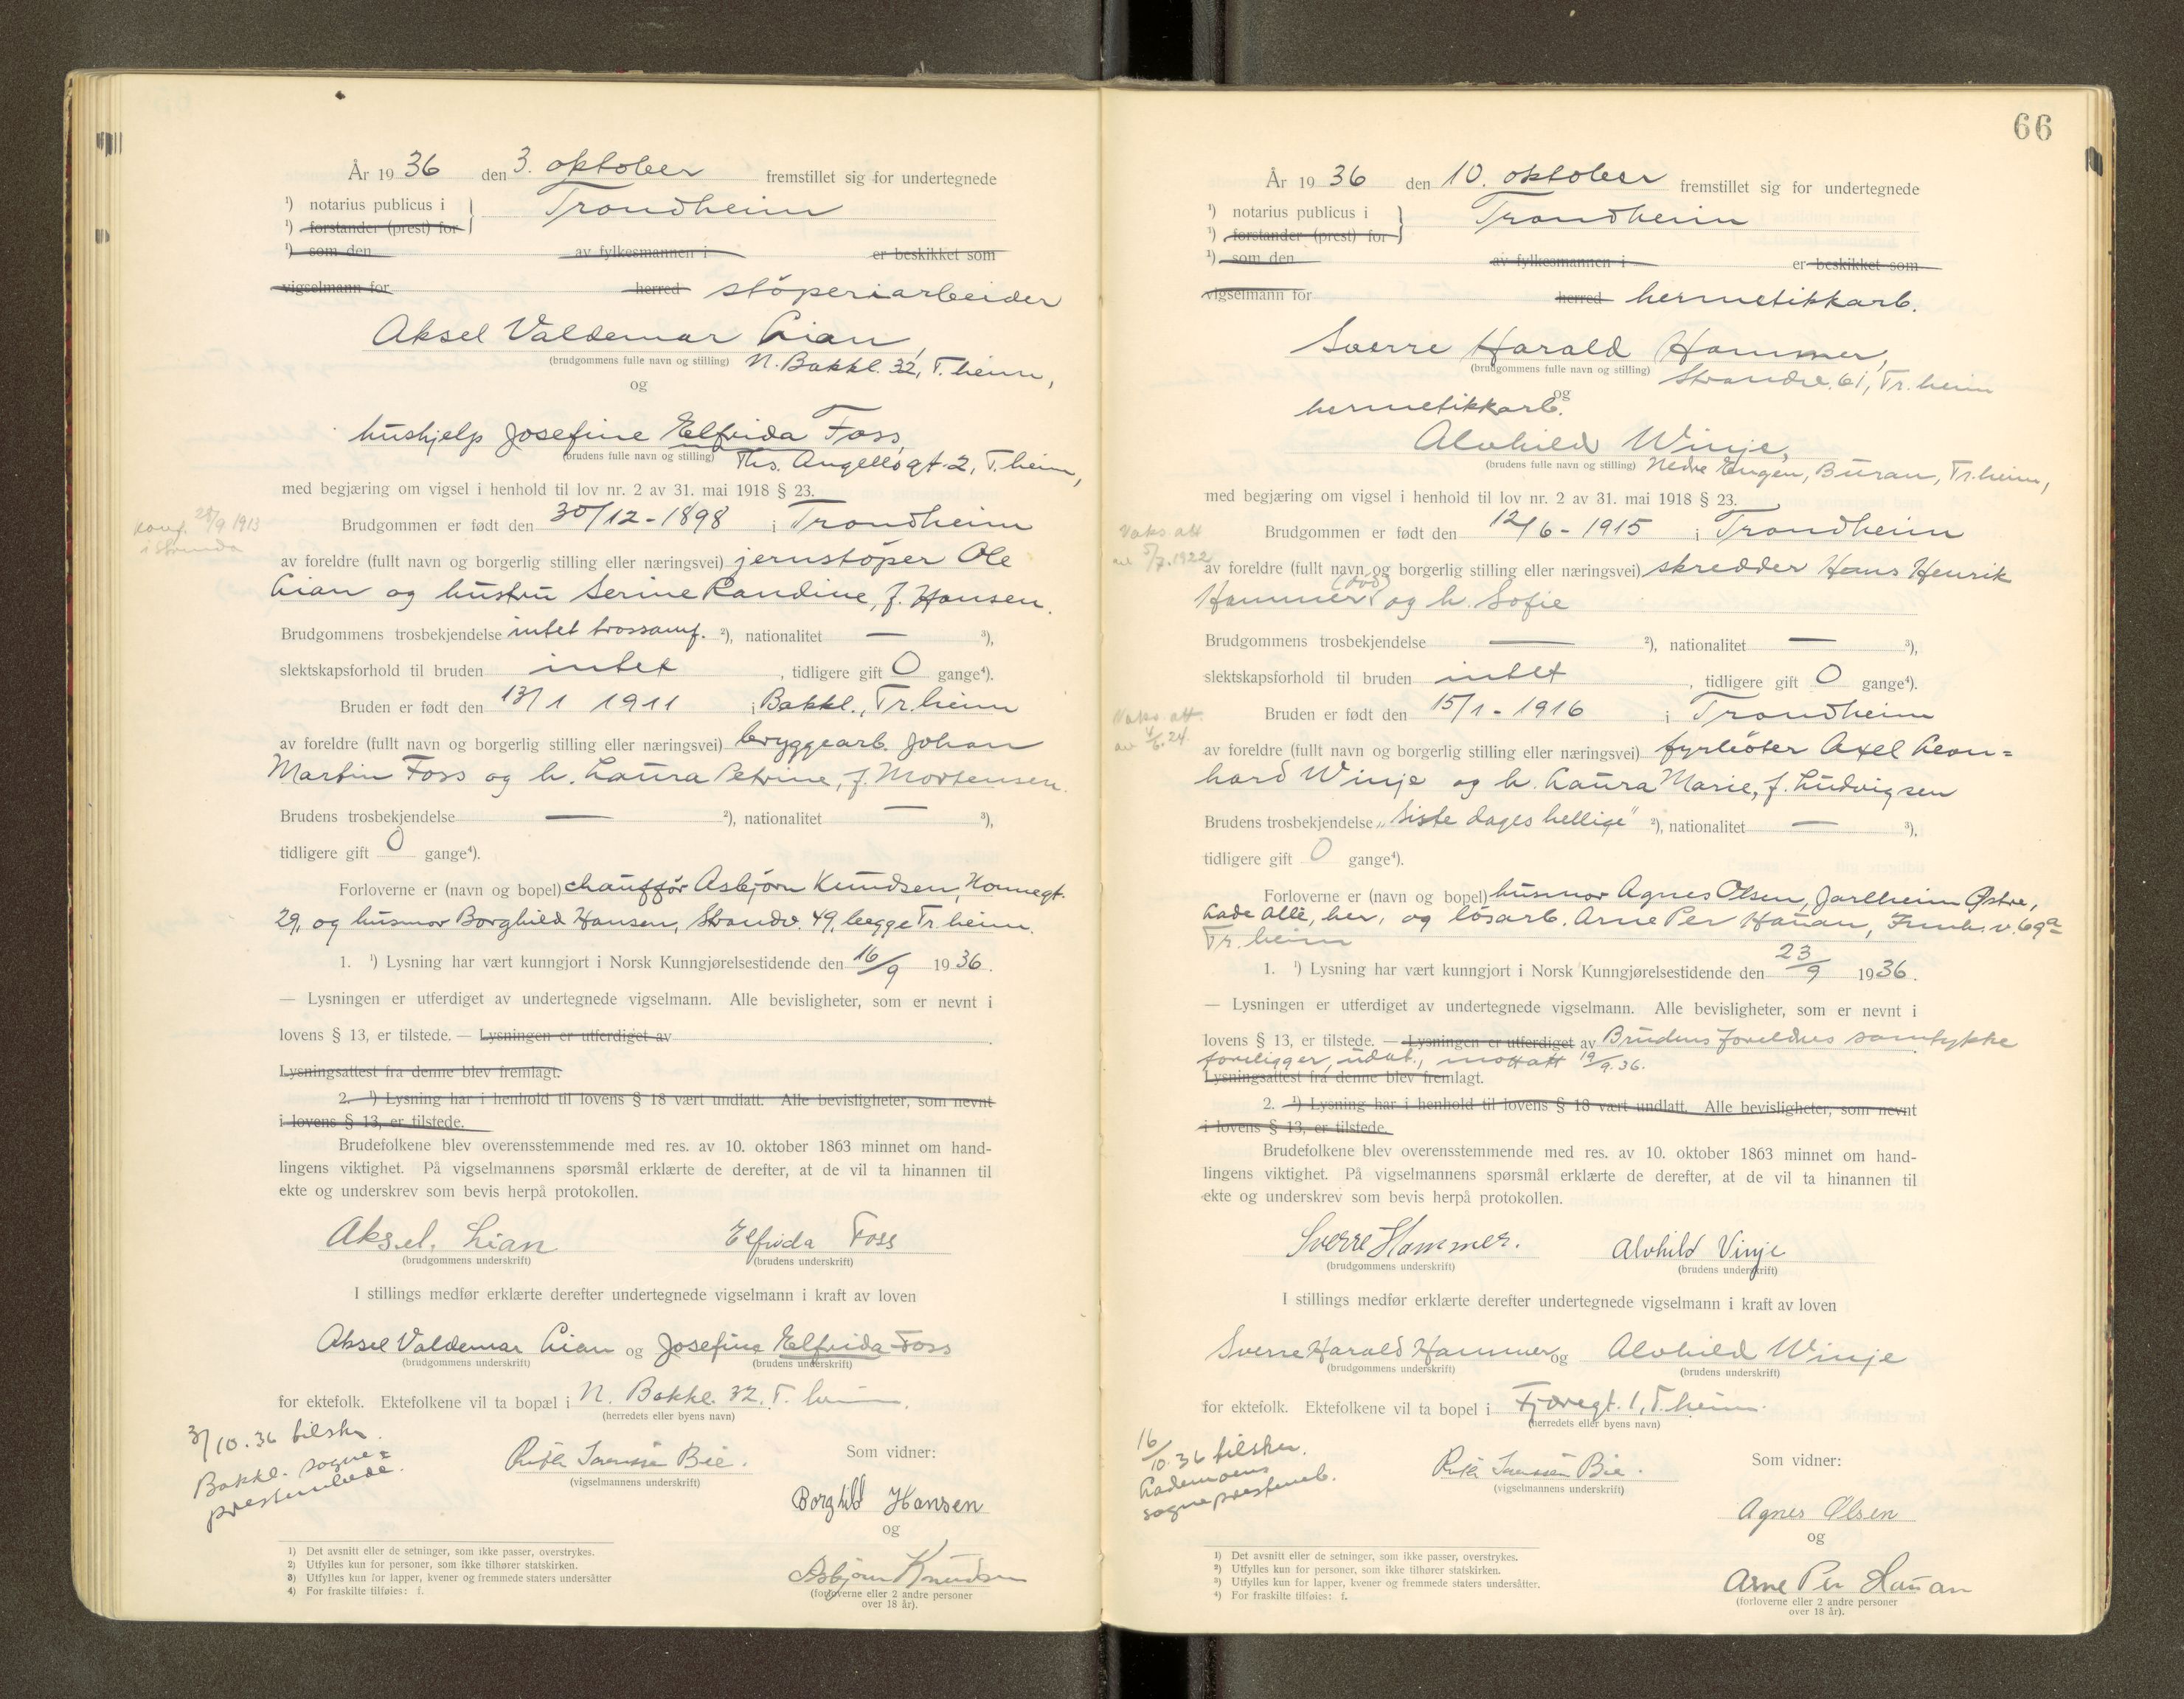 År 19 36 den 3. oktober fremstillet sig for undertegnede
¹) notarius publicus i } Trondheim
¹) forstander (prest) for
¹) som den av fylkesmannen i er beskikket som
vigselmann for herred støperiarbeider
Aksel Valdemar Lian,
(brudgommens fulle navn og stilling) N. Bakkl. 32, T.heim,
og
hushjelp Josefine Elfrida Foss,
(brudens fulle navn og stilling) Ths. Angellsgt. 2, T.heim,
med begjæring om vigsel i henhold til lov nr. 2 av 31. mai 1918 § 23.
konf. 28/9 1913
i Strinda
Brudgommen er født den 30/12-1898 i Trondheim
av foreldre (fullt navn og borgerlig stilling eller næringsvei) jernstøper Ole
Lian og hustru Serine Randine, f. Hansen.
Brudgommens trosbekjendelse intet trossamf. ²), nationalitet — ³),
slektskapsforhold til bruden intet, tidligere gift 0 gange⁴).
Bruden er født den 13/1 1911 i Bakkl., Tr.heim
av foreldre (fullt navn og borgerlig stilling eller næringsvei) bryggearb. Johan
Martin Foss og h. Laura Petrine, f. Mortensen.
Brudens trosbekjendelse — ²), nationalitet — ³),
tidligere gift 0 gange⁴).
Forloverne er (navn og bopel) chauffør Asbjørn Knudsen, Nonnegt.
29, og husmor Borghild Hansen, Strandv. 49, begge Tr.heim.
1. ¹) Lysning har vært kunngjort i Norsk Kunngjørelsestidende den 16/9 1936.
— Lysningen er utferdiget av undertegnede vigselmann. Alle bevisligheter, som er nevnt i
lovens § 13, er tilstede. — Lysningen er utferdiget av
Lysningsattest fra denne blev fremlagt.
2. ¹) Lysning har i henhold til lovens § 18 vært undlatt. Alle bevisligheter, som nevnt
i lovens § 13, er tilstede.
Brudefolkene blev overensstemmende med res. av 10. oktober 1863 minnet om hand-
lingens viktighet. På vigselmannens spørsmål erklærte de derefter, at de vil ta hinannen til
ekte og underskrev som bevis herpå protokollen.
Aksel. Lian Elfrida Foss
(brudgommens underskrift) (brudens underskrift)
I stillings medfør erklærte derefter undertegnede vigselmann i kraft av loven
Aksel Valdemar Lian og Josefine Elfrida Foss
(brudgommens underskrift) (brudens underskrift)
for ektefolk. Ektefolkene vil ta bopæl i N. Bakkl. 32, T.heim.
(herredets eller byens navn)
3/10.36 tilskr.
Bakkl. sogne=
prestembede.
Som vidner:
(vigselmannens underskrift)
Borghild Hansen
og
Asbjørn Knudsen
(forloverne eller 2 andre personer
over 18 år).
1) Det avsnitt eller de setninger, som ikke passer, overstrykes.
2) Utfylles kun for personer, som ikke tilhører statskirken.
3) Utfylles kun for lapper, kvener og fremmede staters undersåtter
4) For fraskilte tilføies: f.
66
År 19 36 den 10. oktober fremstillet sig for undertegnede
¹) notarius publicus i } Trondheim
¹) forstander (prest) for
¹) som den av fylkesmannen i er beskikket som
vigselmann for herred hermetikkarb.
Sverre Harald Hammer,
(brudgommens fulle navn og stilling) Strandv. 61, Tr.heim
og
hermetikkarb.
Alvhild Winje,
(brudens fulle navn og stilling) Nedre Engen, Buran, Tr.heim,
med begjæring om vigsel i henhold til lov nr. 2 av 31. mai 1918 § 23.
Vaks att
av 5/7.1922
Brudgommen er født den 12/6-1915 i Trondheim
av foreldre (fullt navn og borgerlig stilling eller næringsvei) skredder Hans Henrik
Hammer (død) og h. Sofie
Brudgommens trosbekjendelse — ²), nationalitet — ³),
slektskapsforhold til bruden intet, tidligere gift 0 gange⁴).
Vaks att
av 4/6.24
Bruden er født den 15/1-1916 i Trondheim
av foreldre (fullt navn og borgerlig stilling eller næringsvei) fyrbøter Axel Leon=
hard Winje og h. Laura Marie, f. Ludvigsen
Brudens trosbekjendelse „Siste dages hellige" ²), nationalitet — ³),
tidligere gift 0 gange⁴).
Forloverne er (navn og bopel) husmor Agnes Olsen, Jarlheim Østre,
Lade Allé, her, og løsarb. Arne Per Hauan, v. 69a
Tr.heim
1. ¹) Lysning har vært kunngjort i Norsk Kunngjørelsestidende den 23/9 1936.
— Lysningen er utferdiget av undertegnede vigselmann. Alle bevisligheter, som er nevnt i
lovens § 13, er tilstede. — Lysningen er utferdiget av Brudens foreldres samtykke
foreligger, udat., mottatt 19/9.36.
Lysningsattest fra denne blev fremlagt.
2. ¹) Lysning har i henhold til lovens § 18 vært undlatt. Alle bevisligheter, som nevnt
i lovens § 13, er tilstede.
Brudefolkene blev overensstemmende med res. av 10. oktober 1863 minnet om hand-
lingens viktighet. På vigselmannens spørsmål erklærte de derefter, at de vil ta hinannen til
ekte og underskrev som bevis herpå protokollen.
Sverre Hammer. Alvhild Vinje
(brudgommens underskrift) (brudens underskrift)
I stillings medfør erklærte derefter undertegnede vigselmann i kraft av loven
Sverre Harald Hammer og Alvhild Winje
(brudgommens underskrift) (brudens underskrift)
for ektefolk. Ektefolkene vil ta bopel i Fjæregt. 1, T.heim.
(herredets eller byens navn)
16/10.36 tilskr.
Lademoens
sogneprestemb.
Som vidner:
(vigselmannens underskrift)
Agnes Olsen
og
Arne Per Hauan
(forloverne eller 2 andre personer
over 18 år).
1) Det avsnitt eller de setninger, som ikke passer, overstrykes.
2) Utfylles kun for personer, som ikke tilhører statskirken.
3) Utfylles kun for lapper, kvener og fremmede staters undersåtter.
4) For fraskilte tilføies: f.